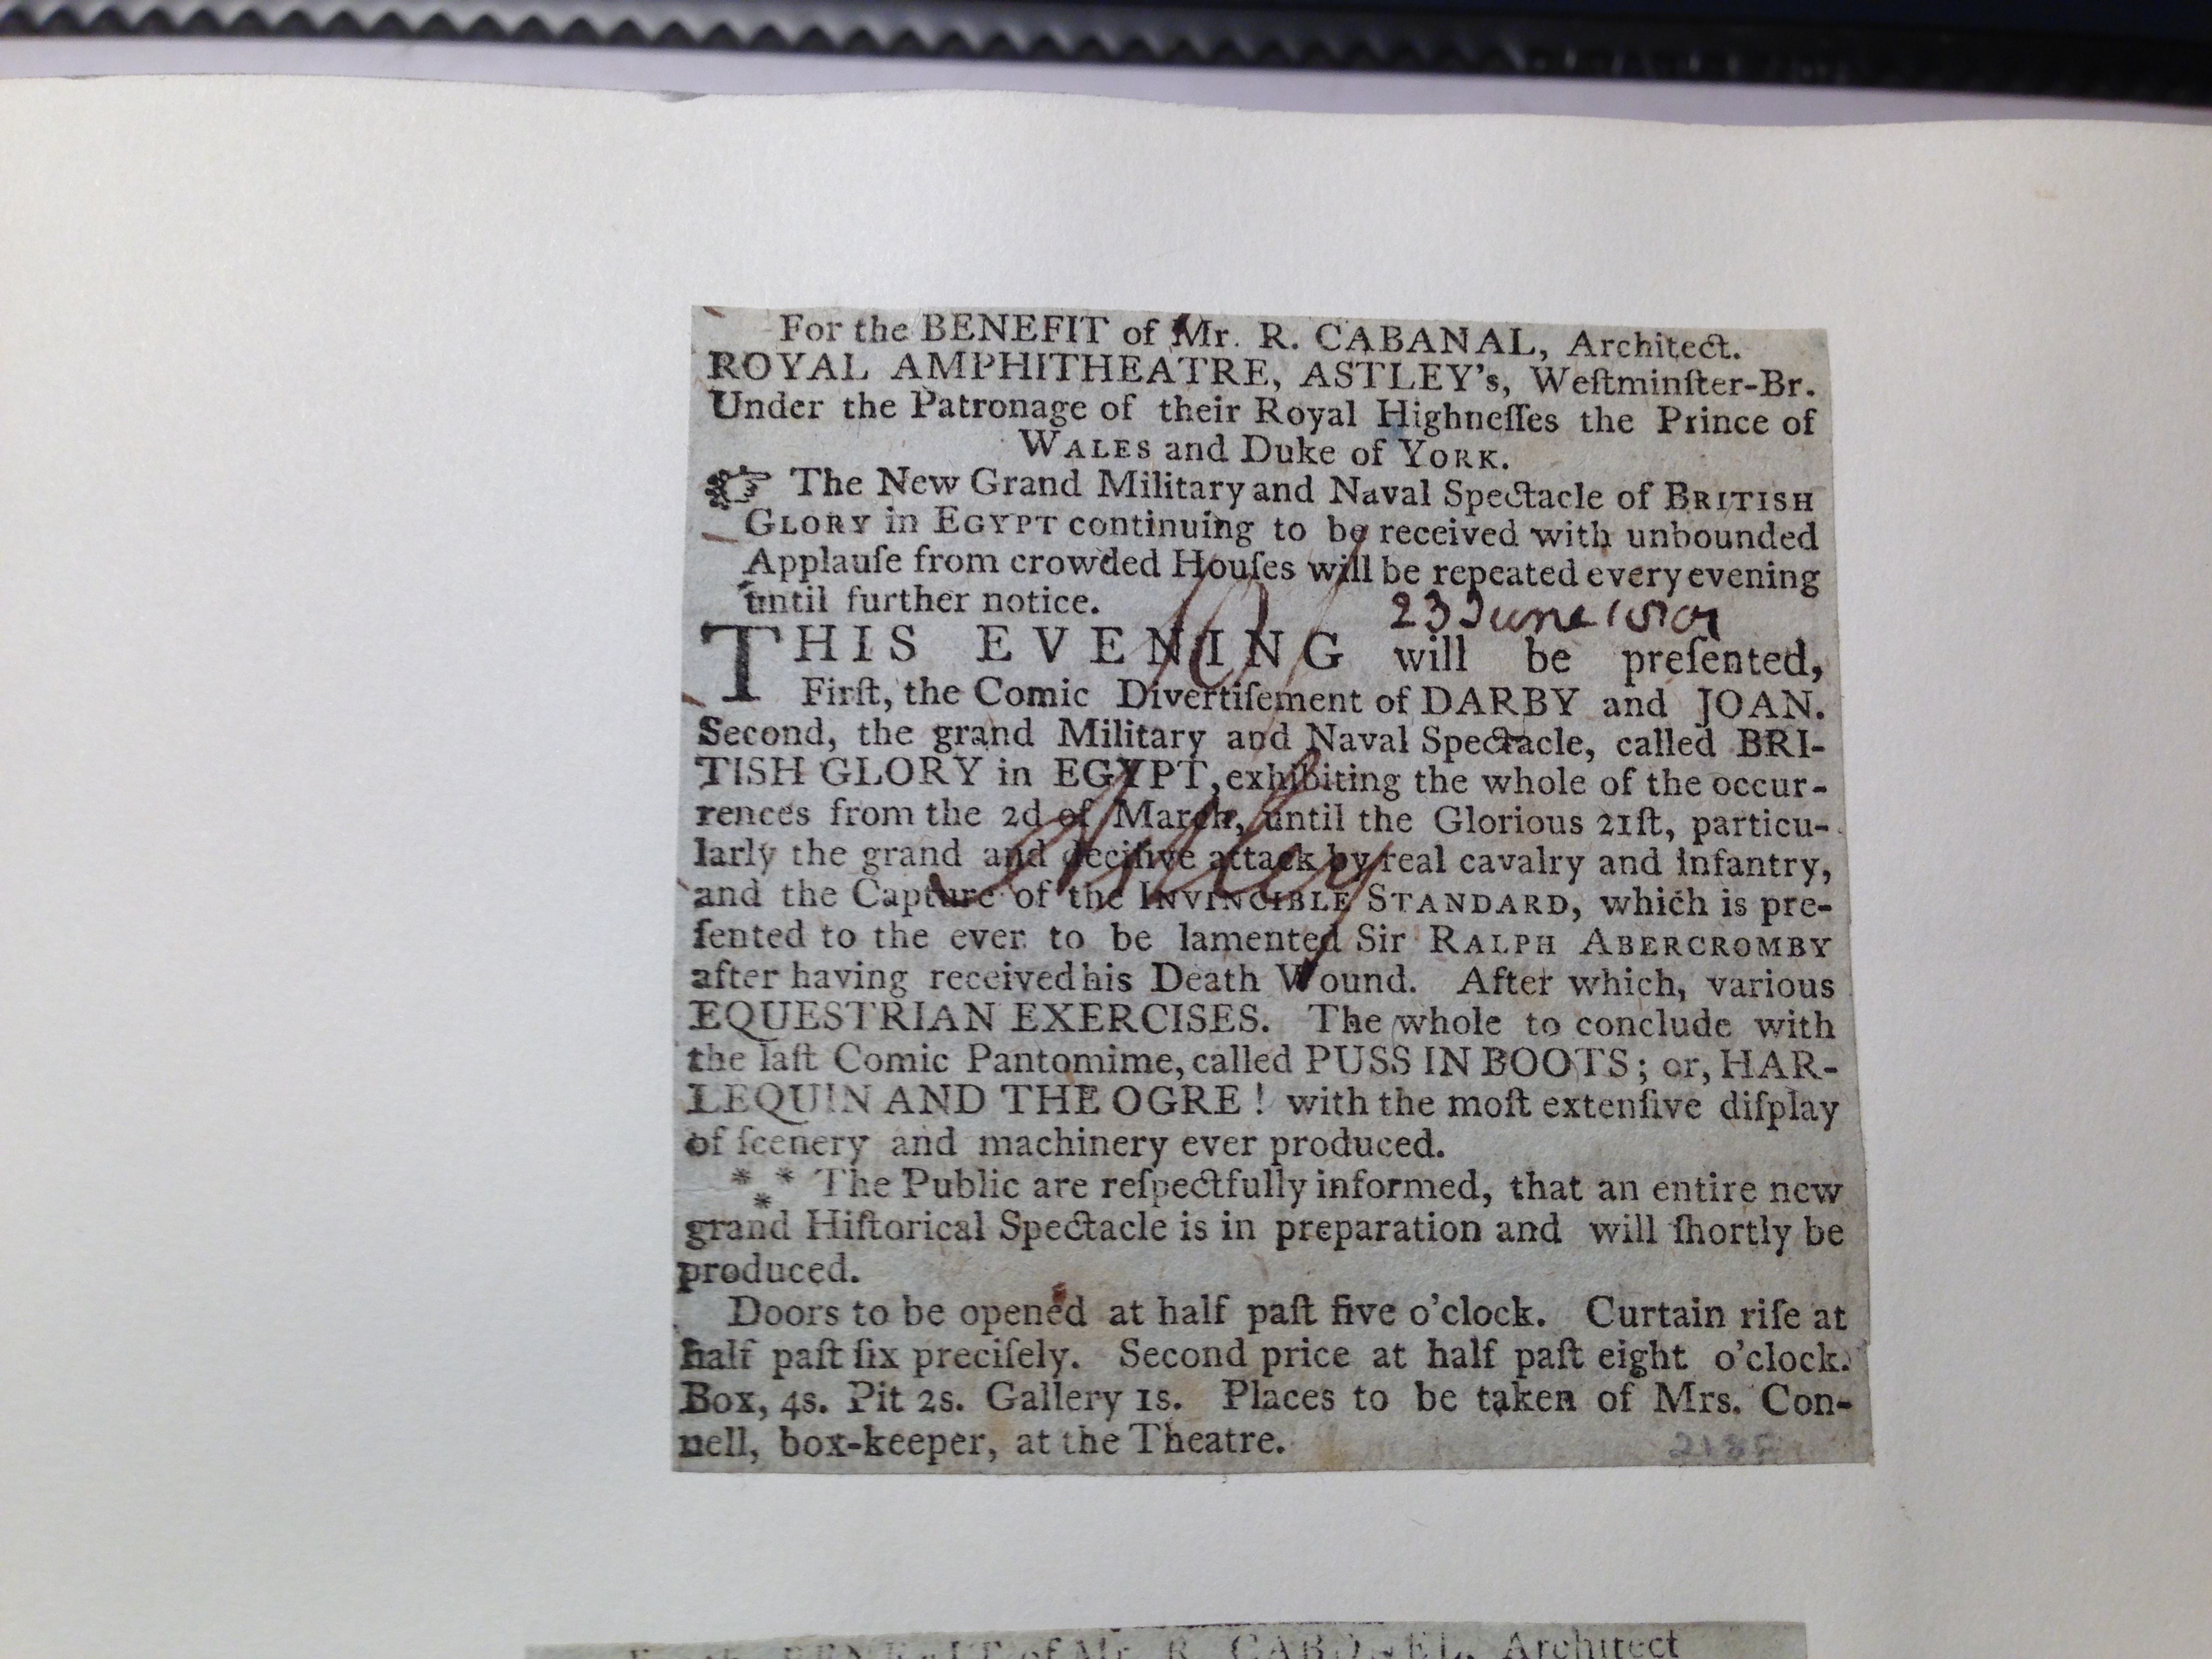 For the BENEFIT of Mr. R. CABANAL, Architect.
ROYAL AMPHITHEATRE, ASTLEY's, Weſtminſter-Br.
Under the Patronage of their Royal Highneſſes the Prince of
WALES and Duke of YORK.
☞ The New Grand Military and Naval Spectacle of BRITISH
GLORY in EGYPT continuing to be received with unbounded
Applauſe from crowded Houſes will be repeated every evening
until further notice.
23 June 1801
THIS EVENING will be preſented,
Firſt, the Comic Divertiſement of DARBY and JOAN.
Second, the grand Military and Naval Spectacle, called BRI-
TISH GLORY in EGYPT, exhibiting the whole of the occur-
rences from the 2d of March, until the Glorious 21ſt, particu-
larly the grand and deciſive attack by real cavalry and infantry,
and the Capture of the INVINCIBLE STANDARD, which is pre-
ſented to the ever to be lamented Sir RALPH ABERCROMBY
after having received his Death Wound. After which, various
EQUESTRIAN EXERCISES. The whole to conclude with
the laſt Comic Pantomime, called PUSS IN BOOTS; or, HAR-
LEQUIN AND THE OGRE! with the moſt extenſive diſplay
of ſcenery and machinery ever produced.
*** The Public are reſpectfully informed, that an entire new
grand Hiſtorical Spectacle is in preparation and will ſhortly be
produced.
Doors to be opened at half paſt five o'clock. Curtain riſe at
half paſt ſix preciſely. Second price at half paſt eight o'clock.
Box, 4s. Pit 2s. Gallery 1s. Places to be taken of Mrs. Con-
nell, box-keeper, at the Theatre.
BENEFIT of Mr. R. CABONEL, Architect